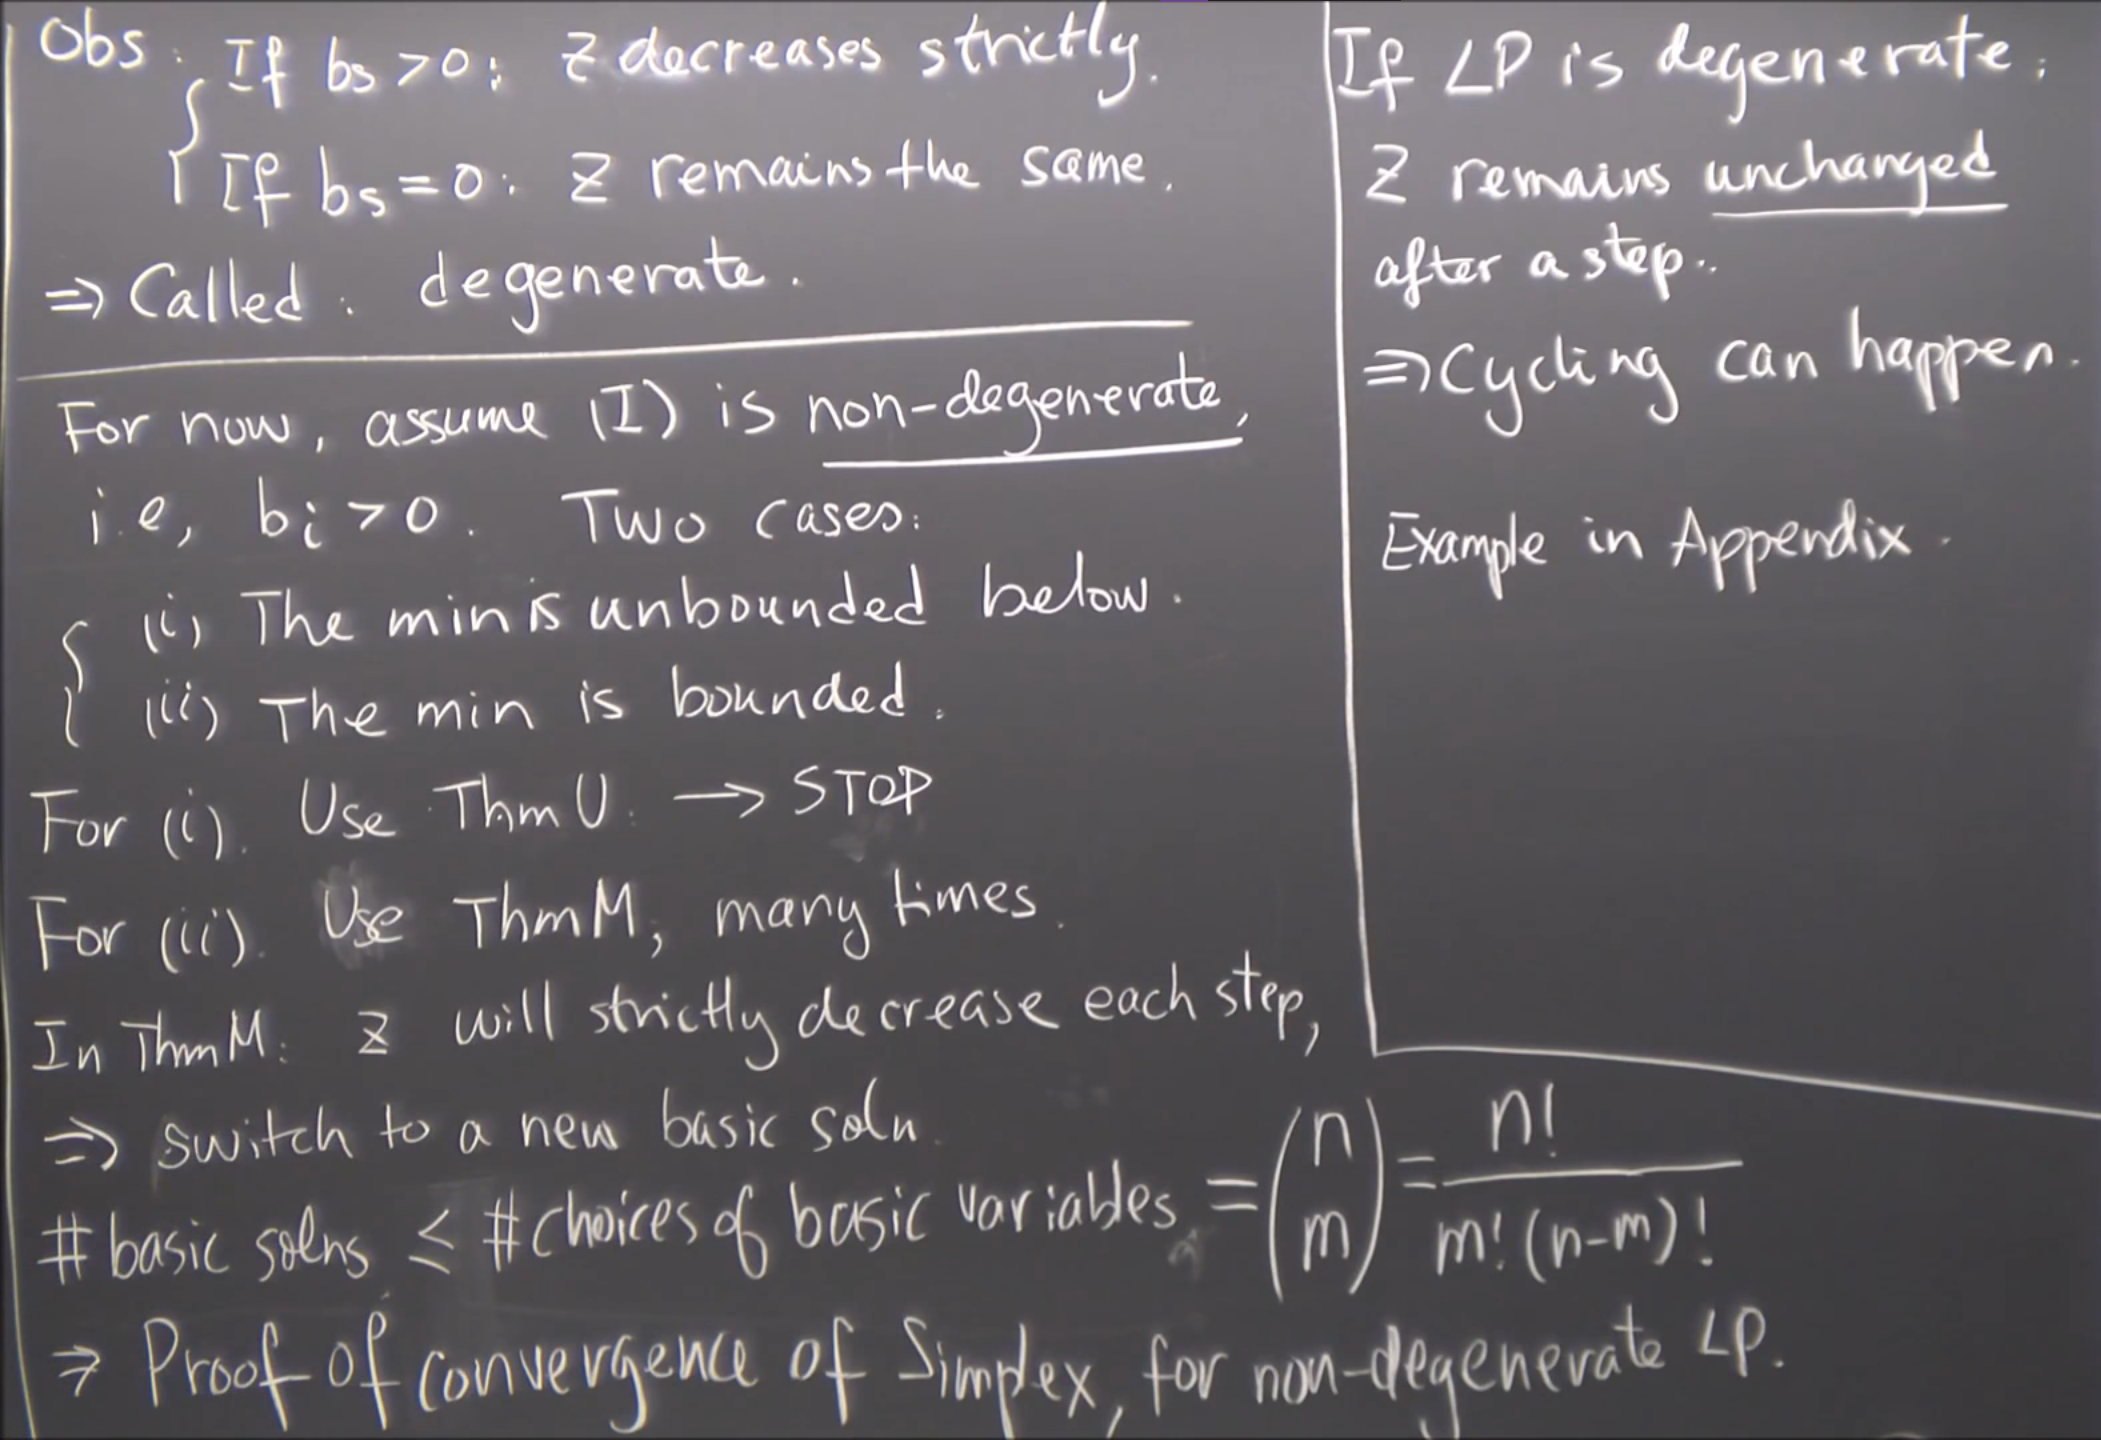 Obs: If bs > 0: Z decreases strictly.
If bs = 0: Z remains the same.
⇒ Called: degenerate.
For now, assume (I) is non-degenerate,
i.e, bi > 0. Two cases:
(i) The min is unbounded below.
(ii) The min is bounded.
For (i). Use Thm U. → STOP
For (ii). Use Thm M, many times.
In Thm M: Z will strictly decrease each step,
⇒ switch to a new basic soln.
# basic solns ≤ # choices of basic variables = (n m) = n! / m! (n-m)!
⇒ Proof of convergence of Simplex, for non-degenerate LP.
If LP is degenerate:
Z remains unchanged
after a step..
⇒ Cycling can happen.
Example in Appendix.